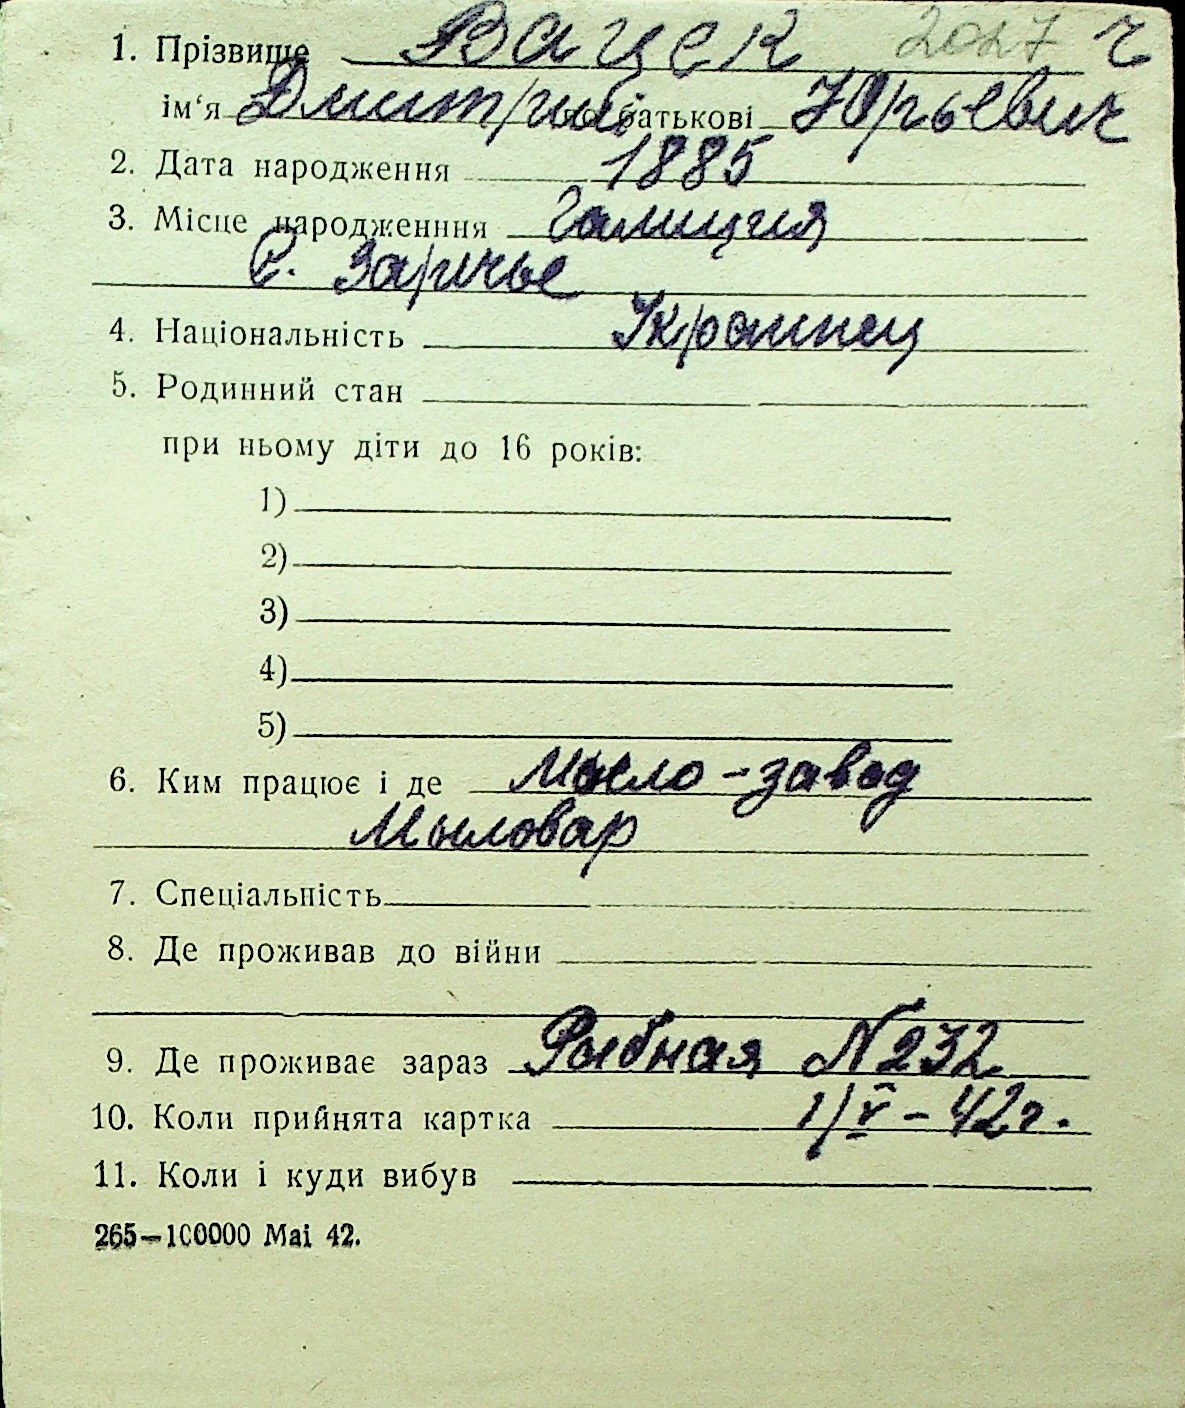 1. Прізвище Вацек 2027 ч
ім‘я Дмитрий по батькові Юрьевич
2. Дата народження 1885
3. Місце народженння Галиция
с. Заричье
4. Національність Украинец
5. Родинний стан
при ньому діти до 16 років:
1)
2)
3)
4)
5)
6. Ким працює і де Мыло-завод
Мыловар
7. Спеціальність
8. Де проживав до війни
9. Де проживає зараз Рыбная N 232
10. Коли прийнята картка 1/V - 42г.
11. Коли і куди вибув
265—100000 Mai 42.